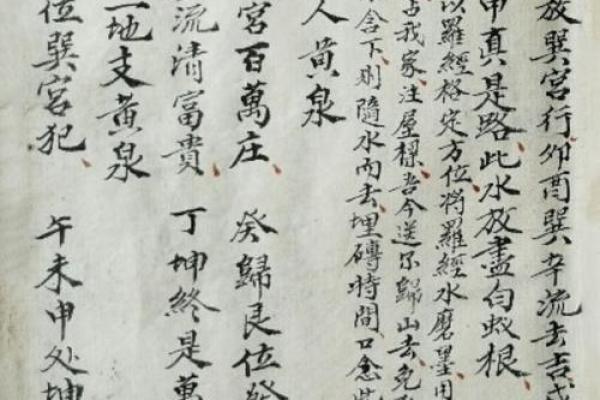 放巽宮行、卯酉巽辛流去吉
申真是路、此水放盡白蟻根、
以羅經格定方位、將羅經水磨墨、用
占我家注屋樑吾今送尔歸山去免
含下、則隨水而去、埋磚時間、口念
人黃泉
宮百萬庄、癸歸艮位發
流清富貴、丁坤終是萬
二地支黃泉
位巽宮犯、午未申处坤